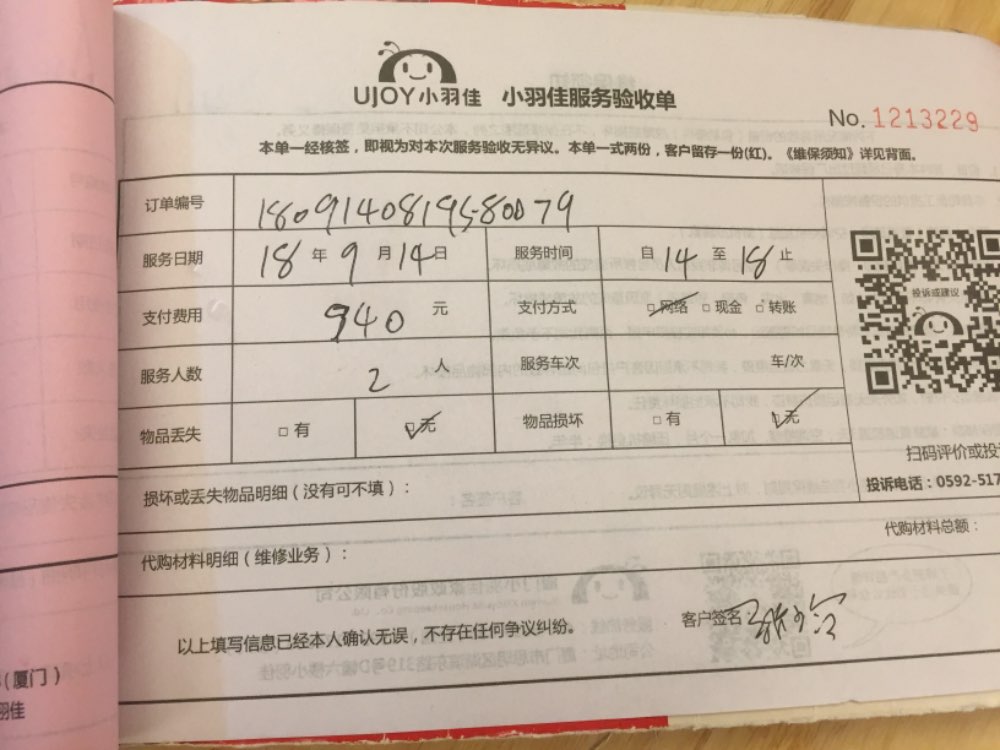 UJOY小羽佳 小羽佳服务验收单
No. 1213229
本单一经核签，即视为对本次服务验收无异议。本单一式两份，客户留存一份(红)。《维保须知》详见背面。
订单编号 1809140819580079
服务日期 18 年 9 月 14 日 服务时间 自 14 至 18 止
支付费用 940 元 支付方式 □网络 □现金 □转账
服务人数 2 人 服务车次 车/次
物品丢失 □有 □无 物品损坏 □有 □无
投诉或建议
扫码评价或投
投诉电话：0592-517
损坏或丢失物品明细（没有可不填）：
代购材料明细（维修业务）： 代购材料总额：
以上填写信息已经本人确认无误，不存在任何争议纠纷。 客户签名：
(厦门)
羽佳